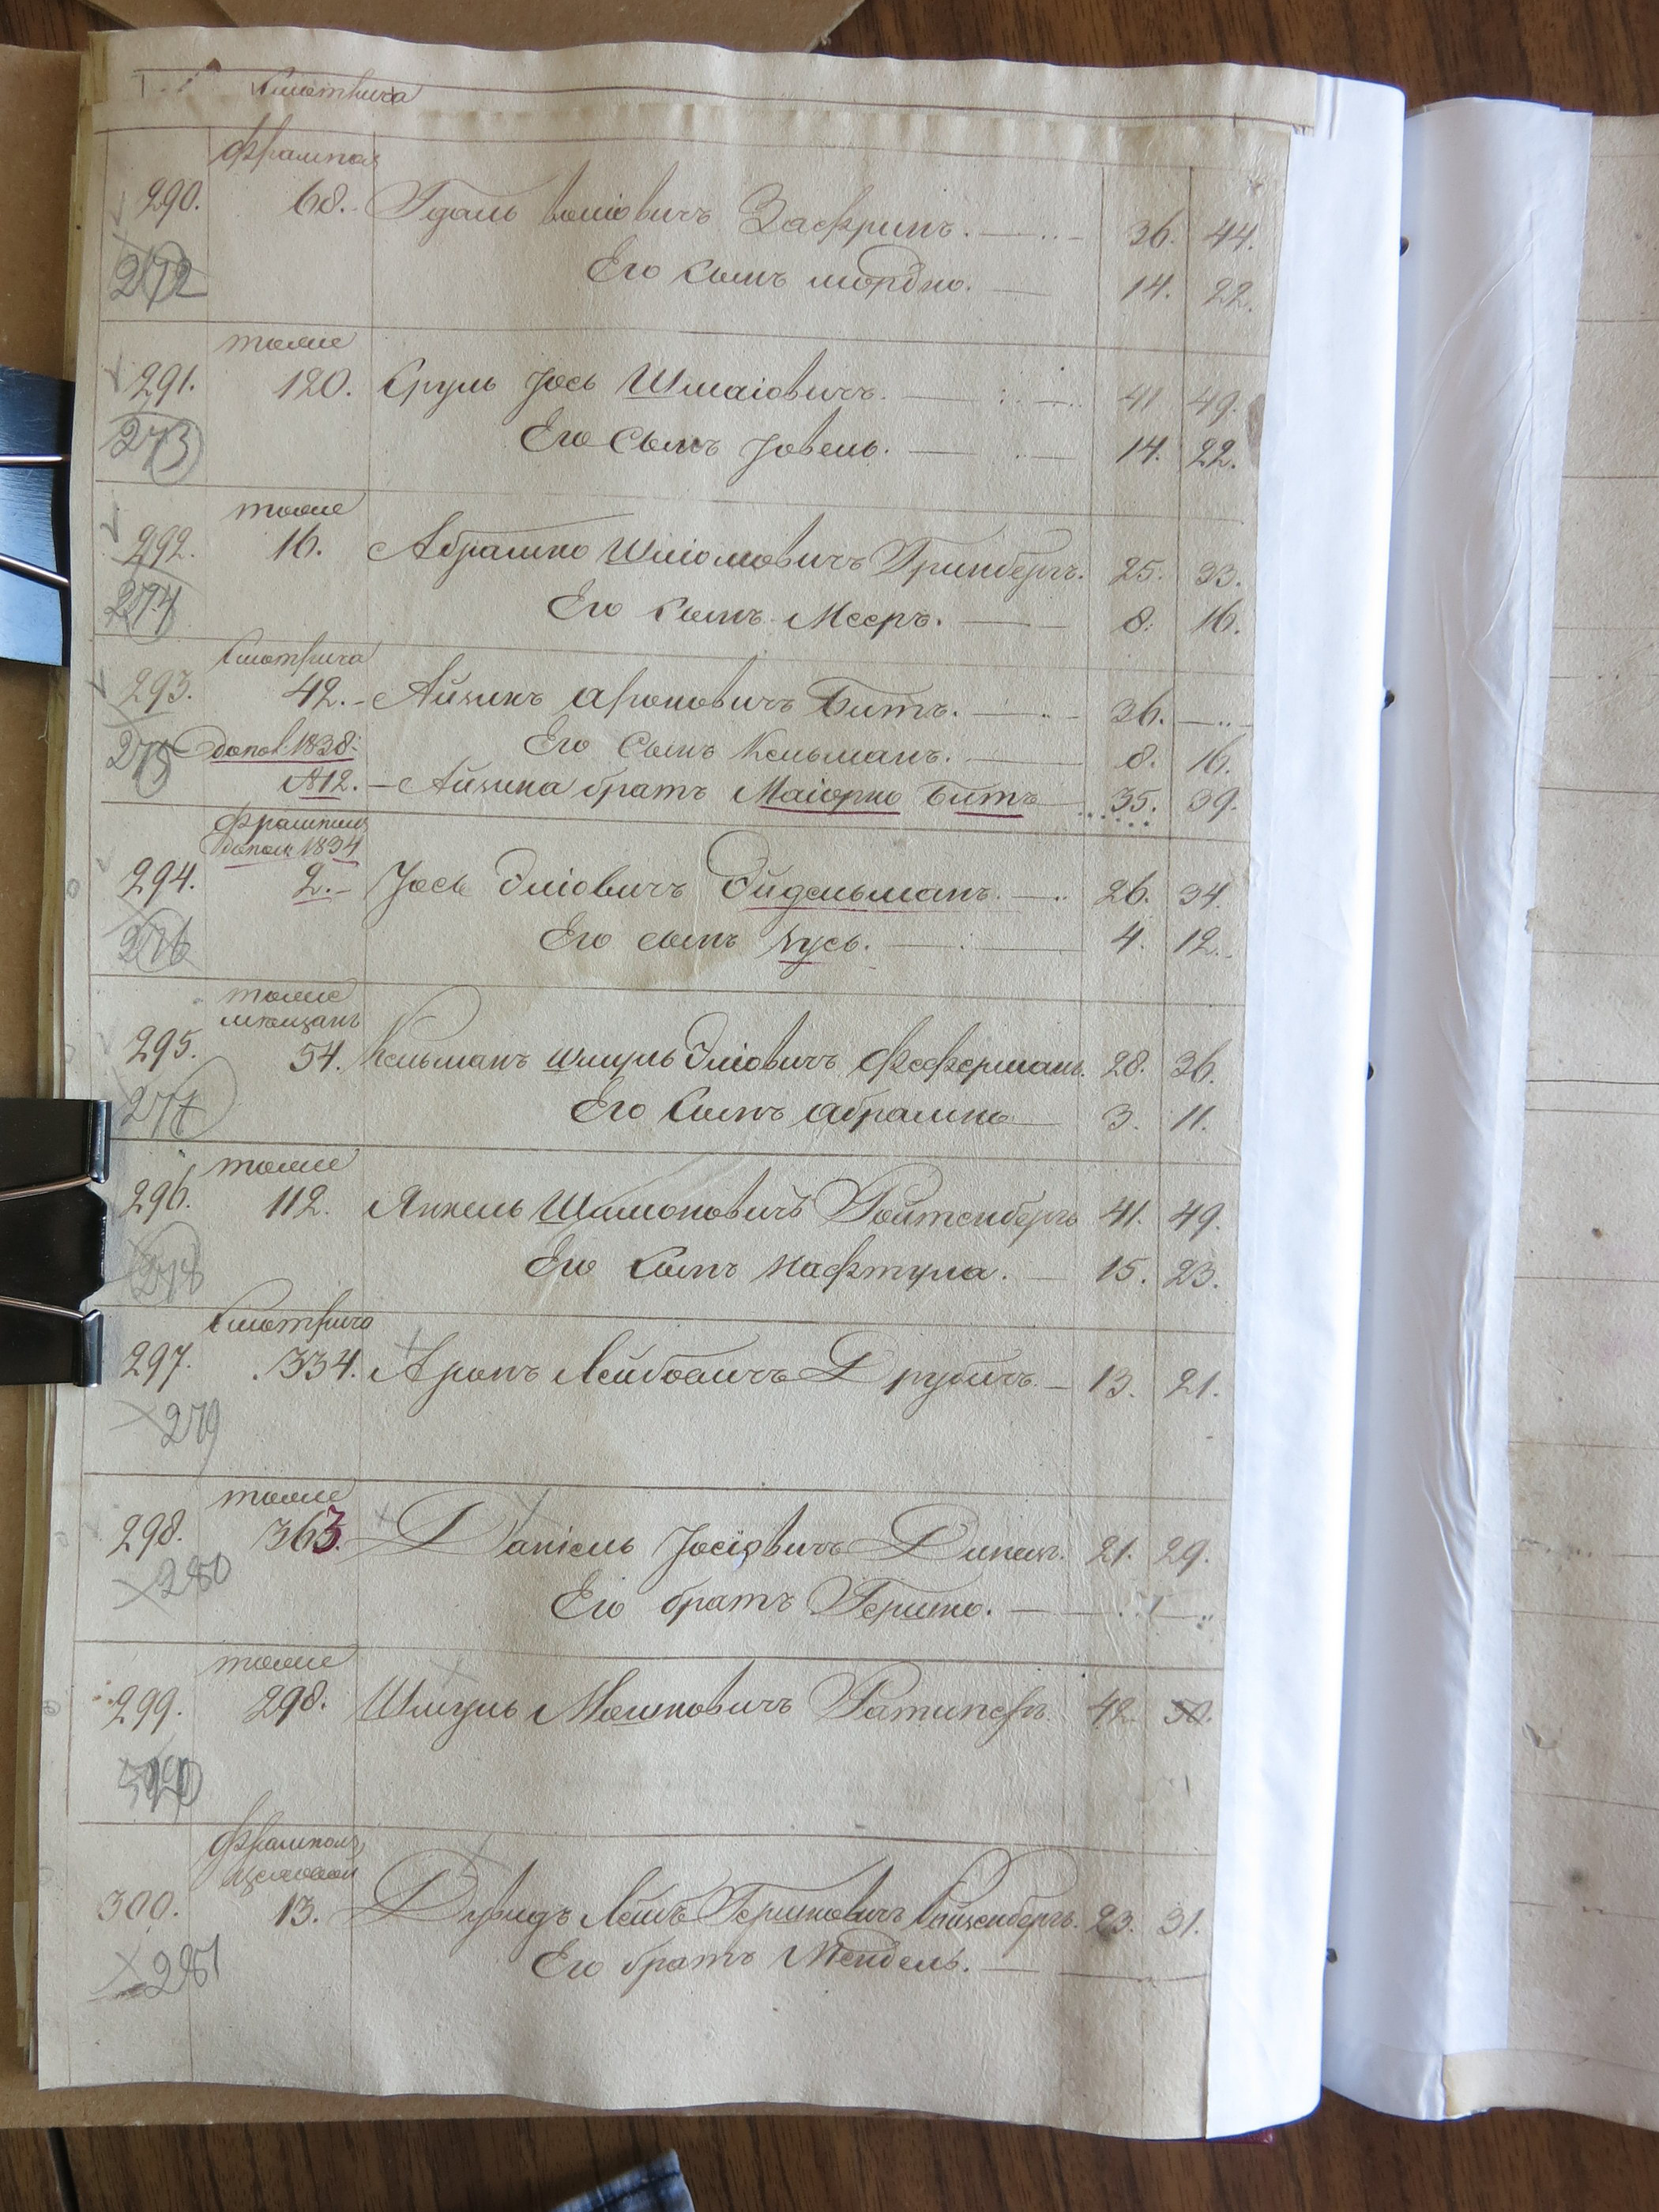 Смотрича
Фрампол
290. 68. Гдаль Волiовичъ Зафринъ. 36. 44.
272 Его сынъ Мордко. 14. 22.
тоже
291. 120. Сруль Iось Шмаiовичъ. 41 49.
273 Его Сынъ Iовель. 14. 22.
тоже
292. 16. Абрамко Шлiомовичъ Гринбергъ. 25. 33.
274 Его сынъ Мееръ. 8. 16.
Смотрича
293. 42. Айзикъ Ароновичъ Битъ. 36.
275 допол. 1838. Его Сынъ Кельманъ. 8. 16.
№12. Айзика братъ Маiорко Битъ 35. 39.
Фрампол
допол 1834
294. 2. Iось Элiовичъ Эйдельманъ. 26. 34.
276 Его сынъ Зусь. 4. 12.
тоже
мещанъ
295. 54. Кельманъ Шмуль Элiовичъ Феферманъ. 28. 36.
277 Его Сынъ Абрамко 3. 11.
тоже
296. 112. Янкель Шимоновичъ Ройтенбергъ 41. 49.
278 Его Сынъ Нафтула. 15. 23.
Смотрича
297. 334. Аронъ Лейбовичъ Друбичъ. 13. 21.
279
тоже
298. 363. Данiель Iосiовичъ 21. 29.
280 Его братъ Гершко.
тоже
299. 298. Шмуль Мошковичъ Ратинеръ. 42. 50.
Фрампол
300. 13. Дувидъ Лейбъ Гершковичъ 23. 31.
281 Его братъ Мендель.